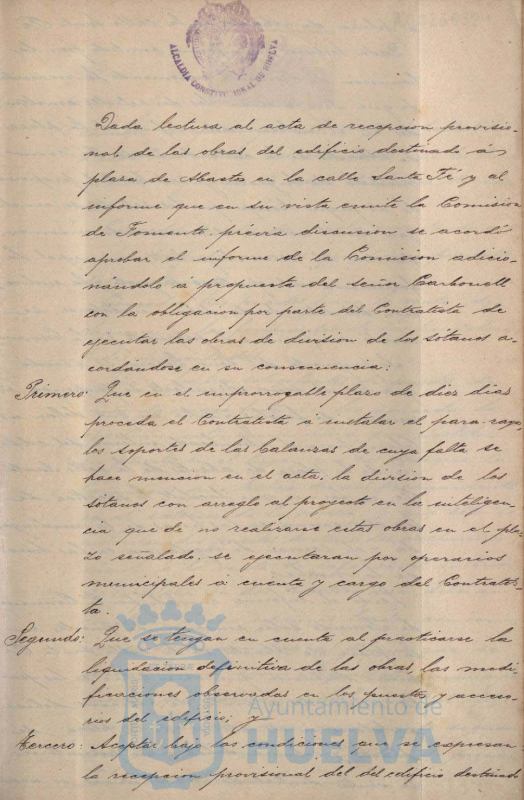 ALCALDIA CONSTITUCIONAL DE HUELVA
Dada lectura al acta de recepcion provisio-
nal de las obras del edificio destinado á
plaza de Abastos en la calle Santa Fé y al
informe que en su vista emite la Comision
de Fomento, prévia discusion se acordó
aprobar el informe de la Comision adicio-
nándolo á propuesta del señor Carbonell
con la obligacion por parte del Contratista de
ejecutar las obras de division de los sótanos a-
cordándose en su consecuencia:
Primero: Que en el improrrogable plazo de diez dias
proceda el Contratista á instalar el para-rayo,
los soportes de las balanzas de cuya falta se
hace mencion en el acta, la division de los
sótanos con arreglo al proyecto en la inteligen-
cia que de no realizarse estas obras en el pla-
zo señalado, se ejecutaran por operarios
municipales á cuenta y cargo del Contratis-
ta.
Segundo: Que se tengan en cuenta al practicarse la
liquidacion definitiva de las obras, las modi-
ficaciones observadas en los puestos y acceso-
rios del edificio; y
Tercero: Aceptar bajo las condiciones que se expresan
la recepcion provisional del del edificio destinado
Ayuntamiento de
HUELVA